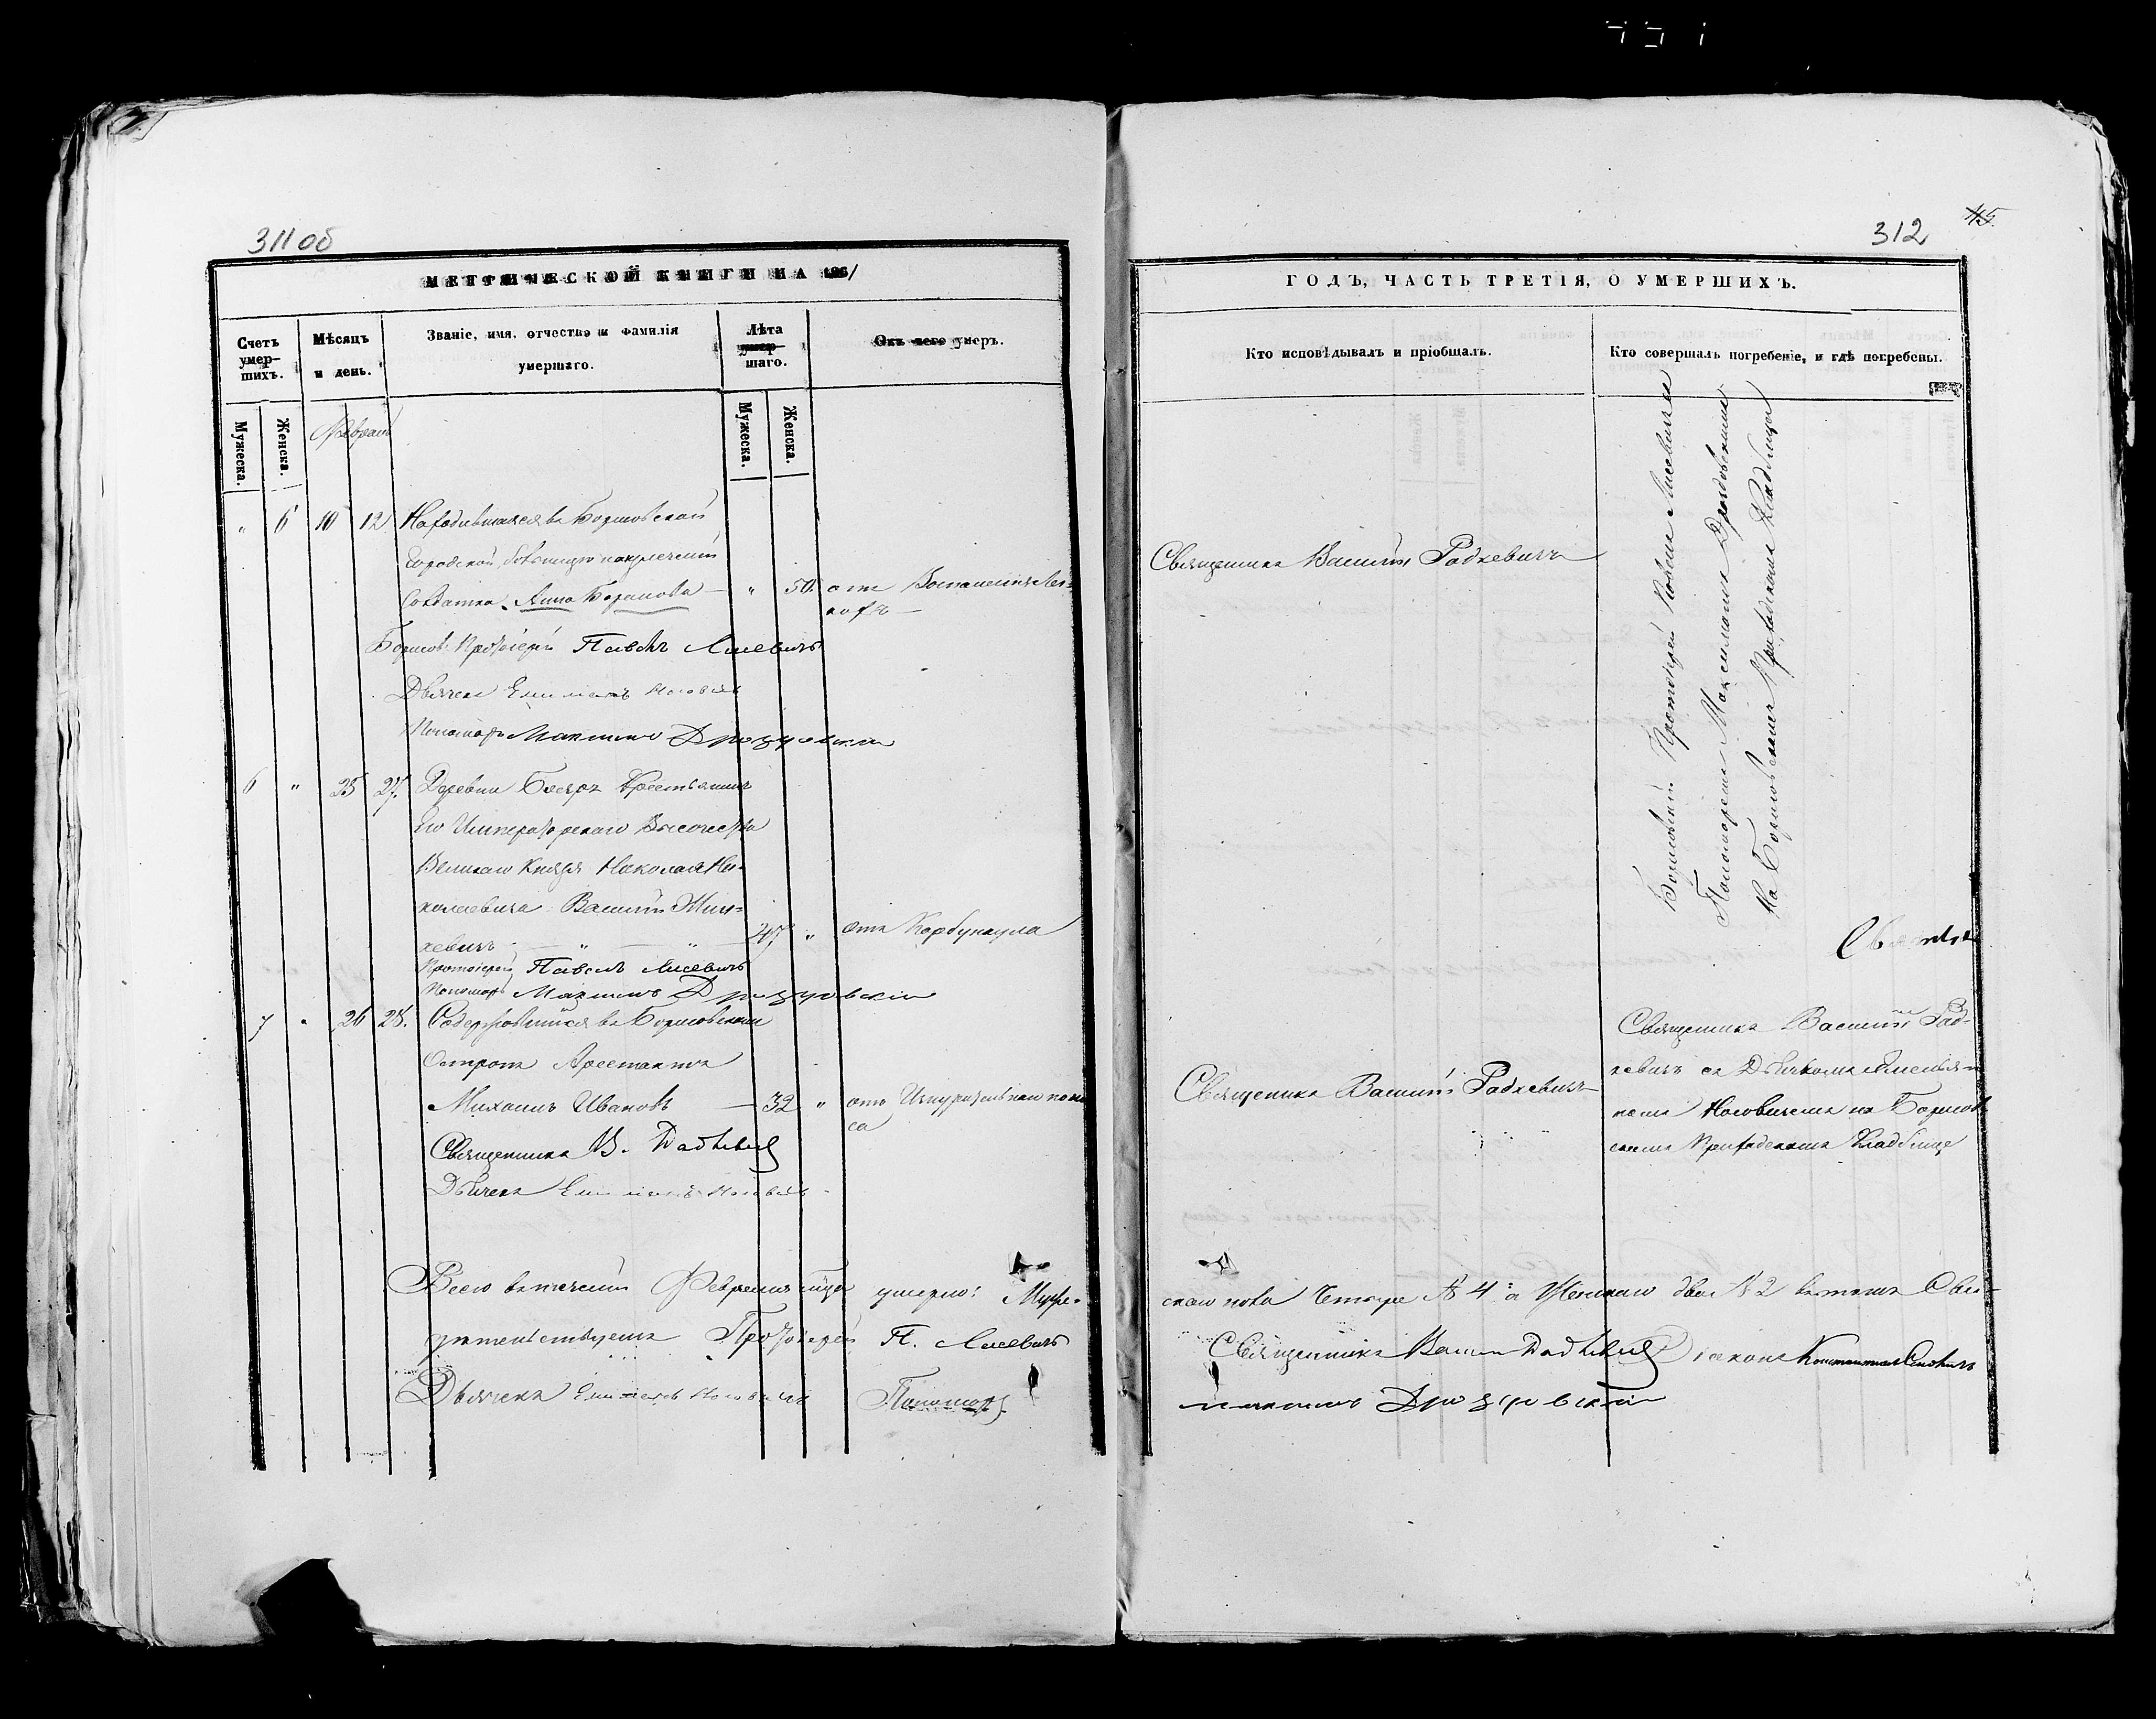 311 об
МЕТРИЧЕСКОЙ КНИГИ НА 1861
Счетъ умер-шихъ.
Мѣсяцъ и день.
Званіе, имя, отчество и фамилія умершаго.
Лѣта умер-шаго.
Отъ чего умеръ.
Мужеска.
Женска.
Мужеска.
Женска.
Февраль
" 6 10 12 Находившаяся въ Борисовской
Городской больницѣ на излеченіи
Солдатка Анна Баранова — " 50. отъ Воспаленія Лег-
кихъ —
Борисов. Протоіерей Павелъ Лисевичъ
Дьячекъ Емиліанъ Носовичъ
Пономарь Максимъ Дроздовскій
6 " 25 27. Деревни Бояръ Крестьянинъ
Его Императорскаго Высочества
Великаго Князя Николая Ни-
колаевича Василій
кевичъ — " — " — 47 " отъ Карбункула
Протоіерей Павелъ Лисевичъ
Пономарь Максимъ Дроздовскій
7 " 26 28. Содержавшійся въ Борисовскомъ
Острогѣ Арестантъ
Михаилъ Ивановъ — 32 " отъ Изнурительнаго поно
са
Священникъ В. Радкевичъ
Дьячекъ Емиліанъ Носовичъ
Всего въ теченіи Февраля м-ца умерло: Муже-
дѣтельствуемъ Протоіерей П. Лисевичъ
Дьячекъ Емиліанъ Носовичъ Пономарь
312
45.
ГОДЪ, ЧАСТЬ ТРЕТІЯ, О УМЕРШИХЪ.
Кто исповѣдывалъ и пріобщалъ.
Кто совершалъ погребеніе, и гдѣ погребены.
Священникъ Василій Радкевичъ
Борисовскій Протоіерей Павелъ Лисевичъ съ
Пономаремъ Максимомъ Дроздовскимъ
На Борисовскомъ Приходскомъ Кладбищѣ
Священникъ Василій Радкевичъ
Священникъ Василій Рад-
кевичъ съ Дьячкомъ Емилья-
номъ Носовичемъ на Борисов-
скомъ Приходскомъ Кладбище
скаго пола Четыре № 4 а Женскаго два № 2 въ томъ Сви-
Священникъ Васил Радкевичъ Діаконъ Константинъ
Максимъ Дроздовскій